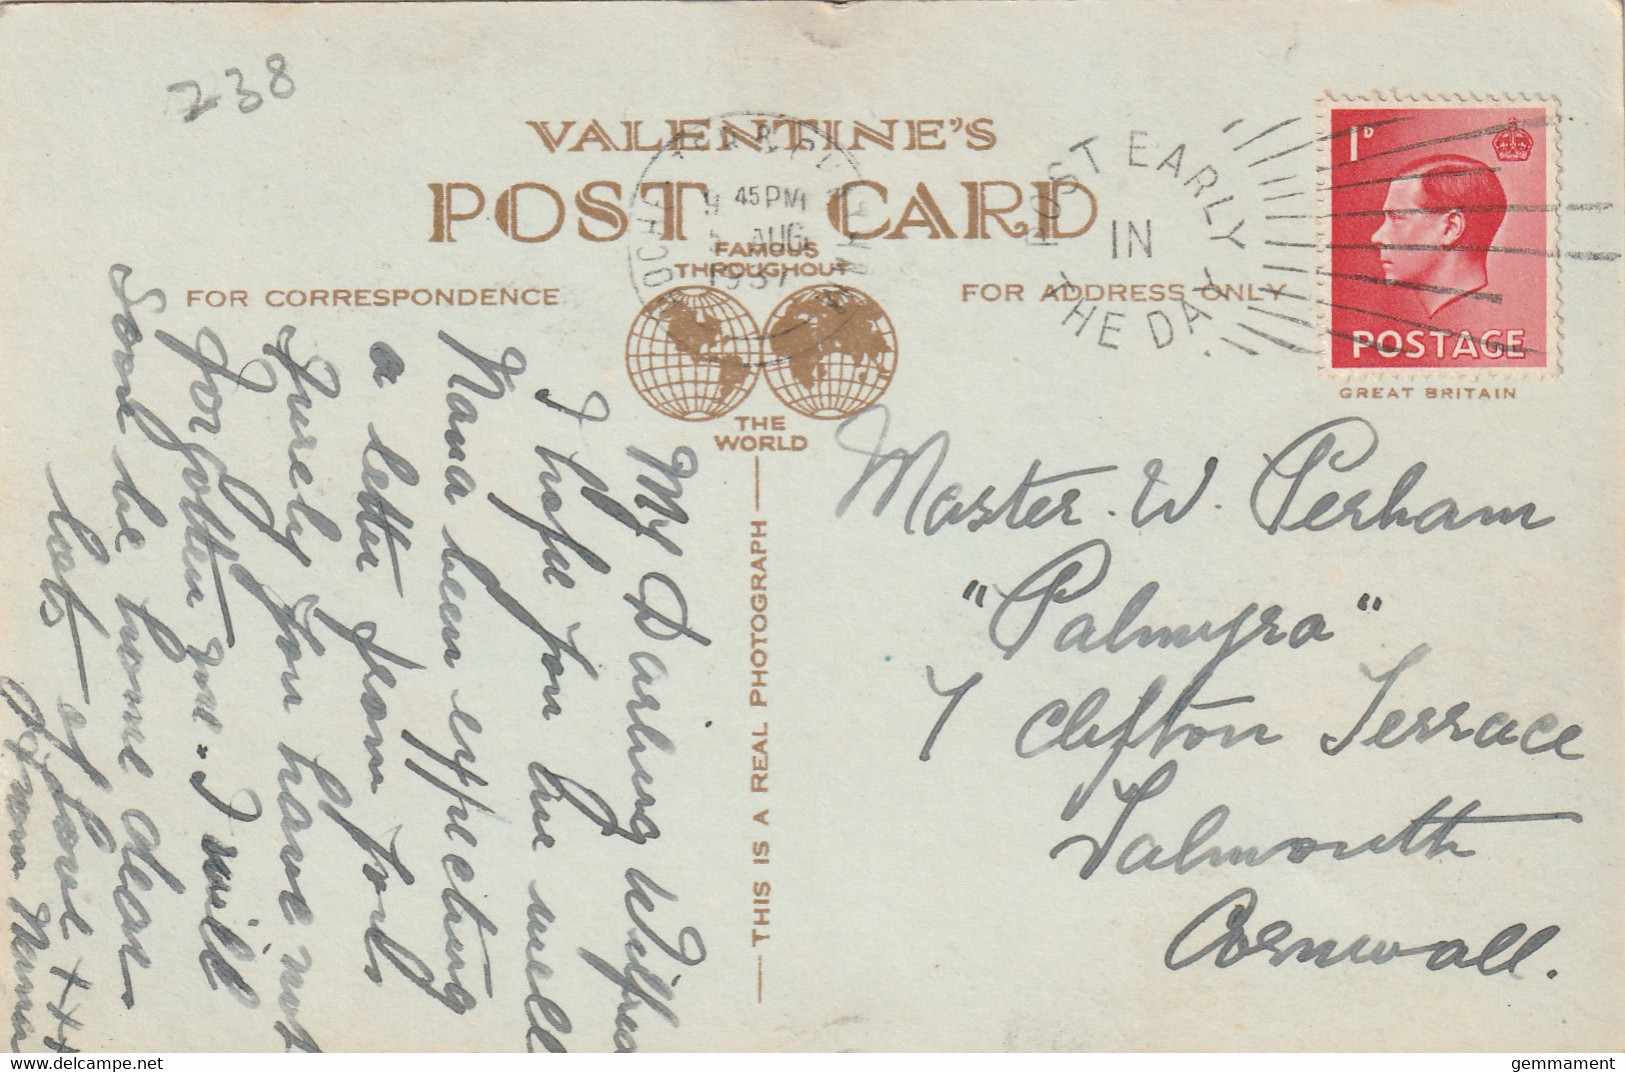 238
VALENTINE'S
POST CARD
FAMOUS
THROUGHOUT
THE
WORLD
FOR CORRESPONDENCE
FOR ADDRESS ONLY
THIS IS A REAL PHOTOGRAPH
9 45 PM
5 AUG
1937
POST EARLY
IN
THE DAY
1D
POSTAGE
GREAT BRITAIN
My Darling Wilfred
I hope you are well
Nana been expecting
a letter from you
Surely you have not
forgotten me. I will
soon be home dear
lots of love +++
from Nana
Master. W. Perham
"Palmyra"
7 Clifton Terrace
Falmouth
Cornwall.
www.delcampe.net
gemmament